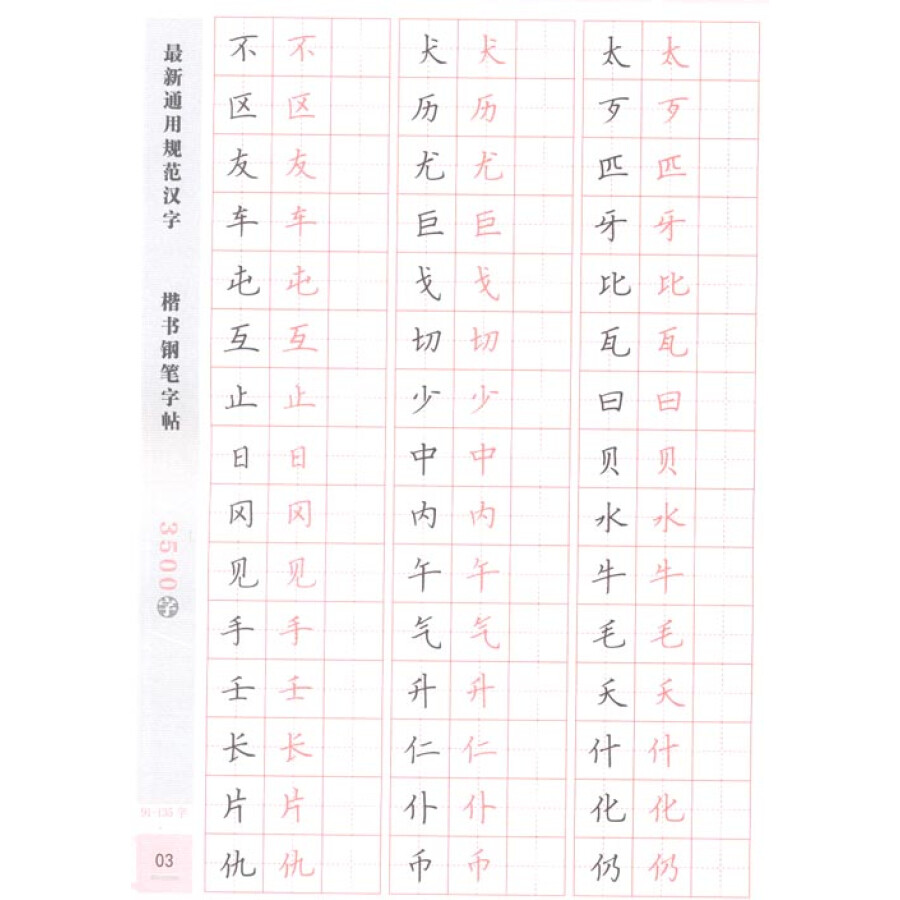 最新通用规范汉字
楷书钢笔字帖
3500字
91-135字
03
不 不 犬 犬 太 太
区 区 历 历 歹 歹
友 友 尤 尤 匹 匹
车 车 巨 巨 牙 牙
屯 屯 戈 戈 比 比
互 互 切 切 瓦 瓦
止 止 少 少 曰 曰
日 日 中 中 贝 贝
冈 冈 内 内 水 水
见 见 午 午 牛 牛
手 手 气 气 毛 毛
壬 壬 升 升 夭 夭
长 长 仁 仁 什 什
片 片 仆 仆 化 化
仇 仇 币 币 仍 仍